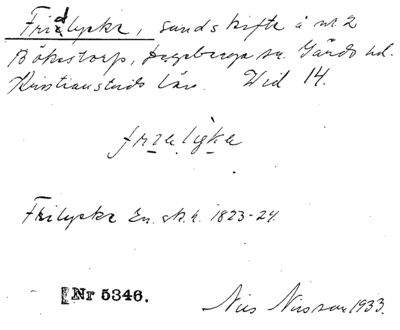 Fridlycke, sandskifte å nr 2
Bökestorp, Degeberga sn. Gärds hd.
Kristianstads län. Wid 14.
Frilycke En. sk. h. 1823-24.
Nr 5346.
Nils Nilsson 1933.